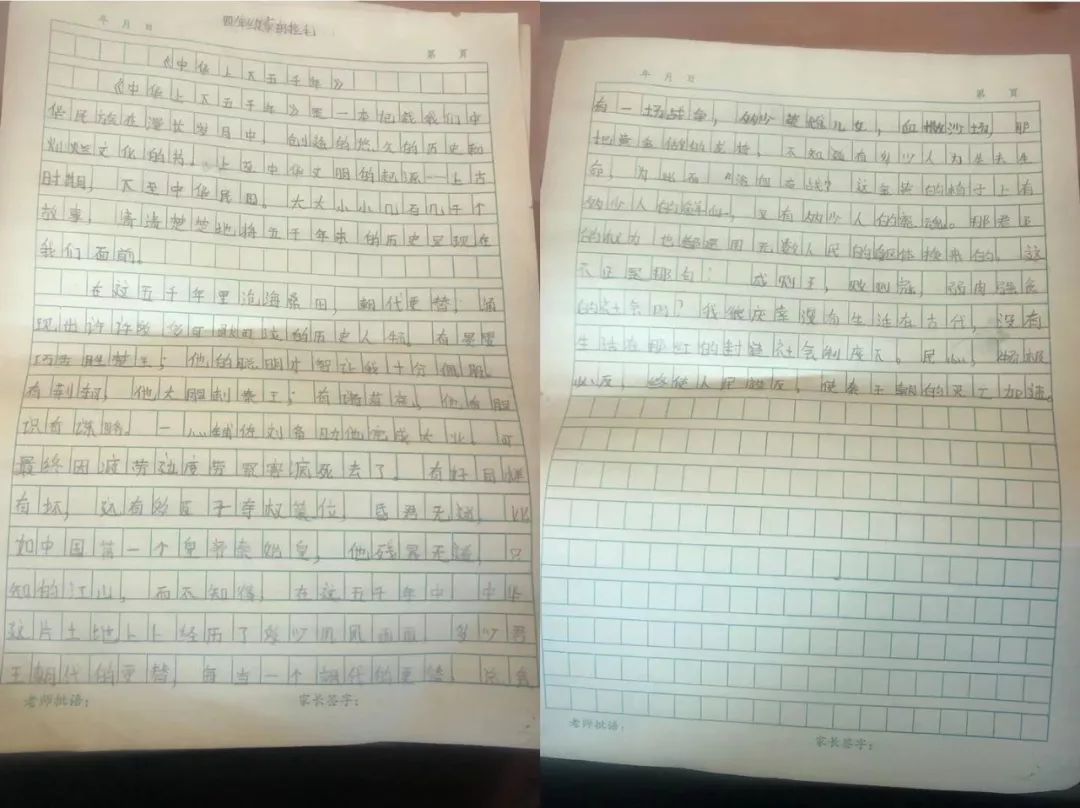 年 月 日
第 页
《中华上下五千年》
《中华上下五千年》是一本记载我们中
华民族在漫长岁月中，创造的悠久的历史和
灿烂文化的书。上至中华文明的起源——上古
时期，下至中华民国。大大小小几百几千个
故事，清清楚楚地将五千年来的历史呈现在
我们面前。
在这五千年里沧海桑田，朝代更替；涌
现出许许多多可歌可泣的历史人物。有晏婴
巧舌胜楚王；他的聪明才智让我十分佩服。
有荆轲，他大胆刺秦王；有诸葛亮，他有胆
识有谋略。一心辅佐刘备助他完成大业。可
最终因疲劳过度劳累害病死去了。有好自然
有坏，这有的臣子夺权篡位，昏君无道，比
如中国第一个皇帝秦始皇，他残暴无道，只
知的江山，而不知得，在这五千年中，中华
这片土地上经历了多少风风雨雨，多少君
王朝代的更替，每当一个朝代的更替，总会
年 月 日
第 页
有一场战争，多少英雄儿女，血撒沙场，那
地黄金的龙椅，不知道有多少人为失去生
命，为此而“浴血奋战”这金黄的椅子上有
多少人的鲜血，又有多少人的灵魂。那君王
的权力也都是用无数人民的躯体换来的，这
不正是那句：成则王，败则寇，弱肉强食
的社会吗？我很庆幸没有生活在古代，没有
生活在那时的封建社会制度下。民心，物极
必反，终使人民造反，使秦王朝的灭亡加速。
老师批语：
家长签字：
老师批语：
家长签字：